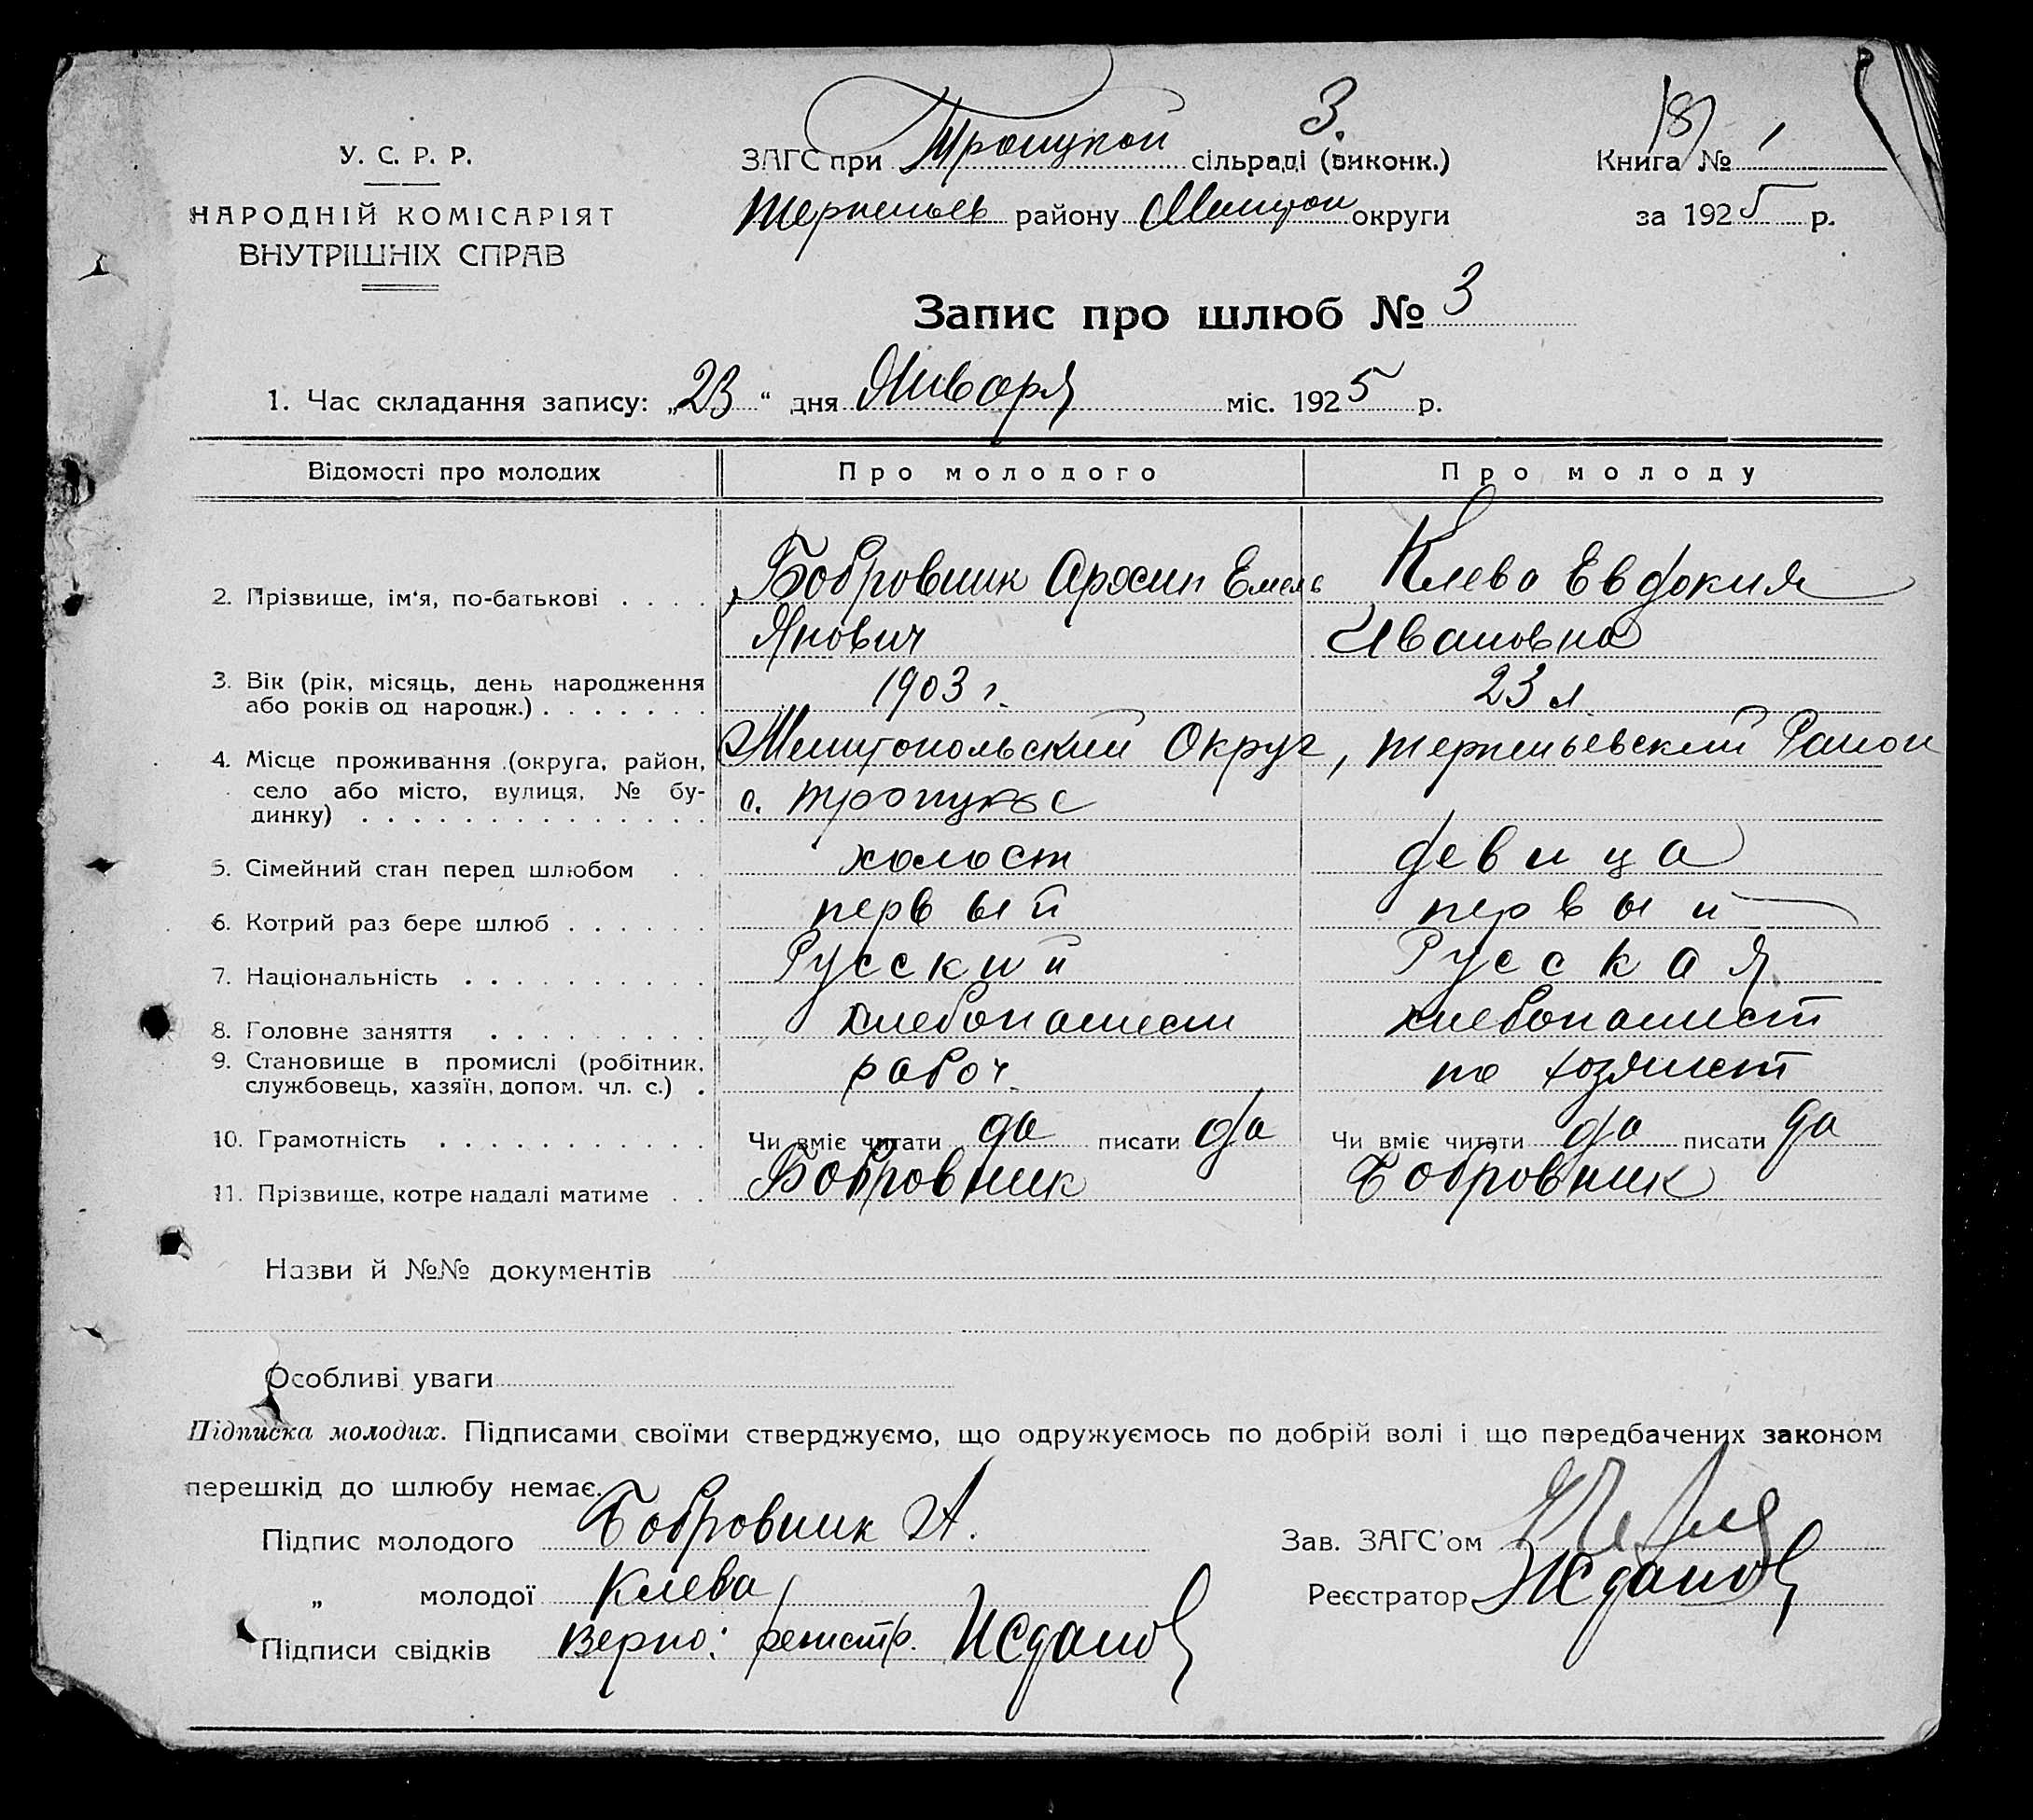 3.
181
У. С. Р. Р.
НАРОДНІЙ КОМІСАРІЯТ
ВНУТРІШНІХ СПРАВ
ЗАГС при Троицкой сільраді (виконк.)
Терпеньев району Мелитоп округи
Книга № 1
за 1925 р.
Запис про шлюб № 3
1. Час складання запису: „23“ дня Января міс. 1925 р.
Відомості про молодих Про молодого Про молоду
2. Прізвище, ім'я, по-батькові . . . . Бобровник Архип Емель Клева Евдокия
Янович Ивановна
3. Вік (рік, місяць, день народження 1903 г. 23 л.
або років од народж.) . . . . . . .
4. Місце проживання (округа, район, Мелитопольский Округ, терпеньевский Район
село або місто, вулиця, № бу- с. троицкое
динку) . . . . . . . . . . . . . .
5. Сімейний стан перед шлюбом . . холост девица
6. Котрий раз бере шлюб . . . . . . первый первый
7. Національність . . . . . . . . . . Русский Русская
8. Головне заняття . . . . . . . . . хлебопашест хлебопашест
9. Становище в промислі (робітник, рабоч. по хозяйст
службовець, хазяїн, допом. чл. с.) .
10. Грамотність . . . . . . . . . . . Чи вміє читати да писати да Чи вміє читати да писати да
11. Прізвище, котре надалі матиме . . Бобровник Бобровник
Назви й №№ документів
Особливі уваги
Підписка молодих. Підписами своїми стверджуємо, що одружуємось по добрій волі і що передбачених законом
перешкід до шлюбу немає.
Підпис молодого Бобровник А. Зав. ЗАГС'ом
„ молодої Клева Реєстратор Жданов
Підписи свідків Верно: регистр. Жданов